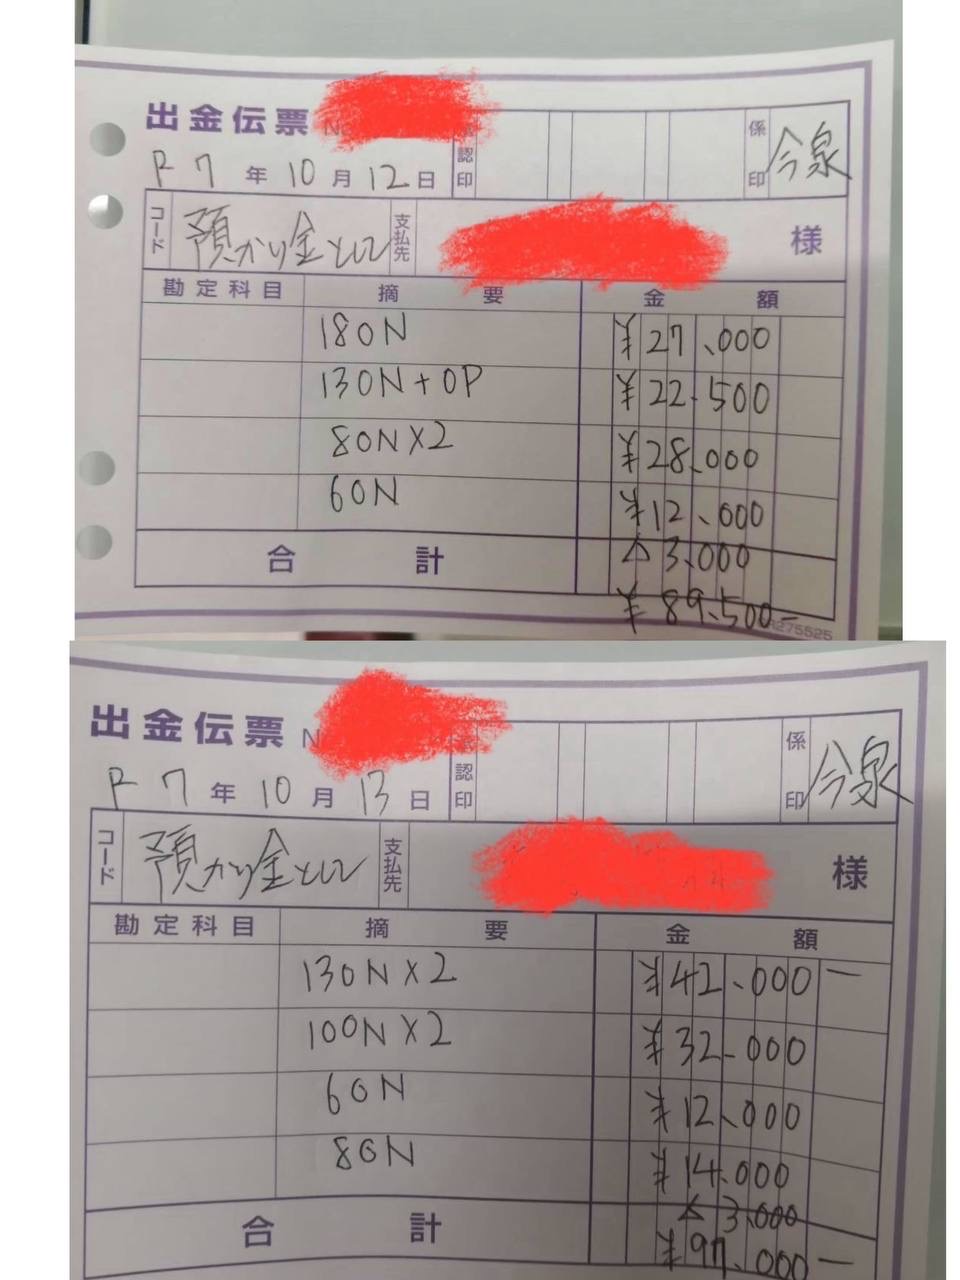 出金伝票
認印 係印 今泉
R 7 年 10 月 12 日
コード 預かり金として 支払先 様
勘定科目 摘要 金額
180N ¥27,000
130N+OP ¥22,500
80N×2 ¥28,000
60N ¥12,000
△3,000
合計 ¥89,500-
R275525
出金伝票 N
認印 係印 今泉
R 7 年 10 月 13 日
コード 預かり金として 支払先 様
勘定科目 摘要 金額
130N×2 ¥42,000-
100N×2 ¥32,000
60N ¥12,000
80N ¥14,000
△3,000
合計 ¥97,000-